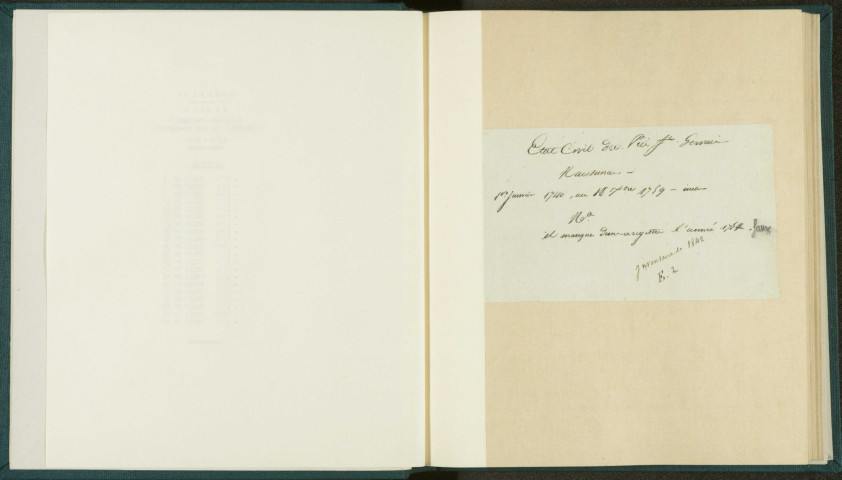 Etat Civil du Pré St Gervais
Naissances —
1er Janvier 1740, au 18 7bre 1759 — inc
Na
il manque dans ce registre l'année 1754. faux
Inventaire de 1842
E. 2